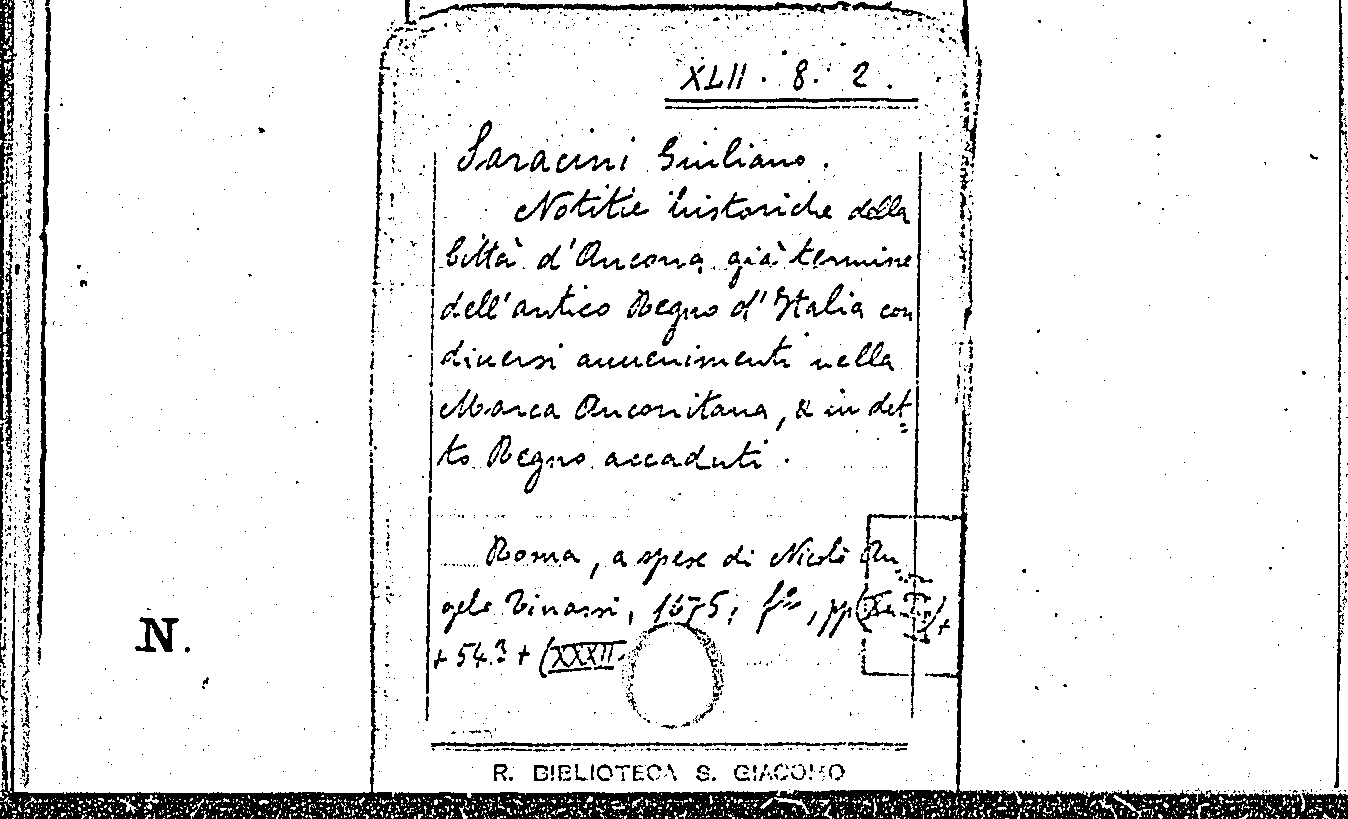 XLII. 8. 2.
Saracini Giuliano.
Notitie historiche della
Città d'Ancona già termine
dell'antico Regno d'Italia con
diuersi auuenimenti nella
Marca Anconitana, & in det-
to Regno accaduti.
Roma, a spese di Nicolò An
gelo Tinassi, 1675; f°, pp
+ 543 + (XXXII
N.
R. BIBLIOTECA S. GIACOMO